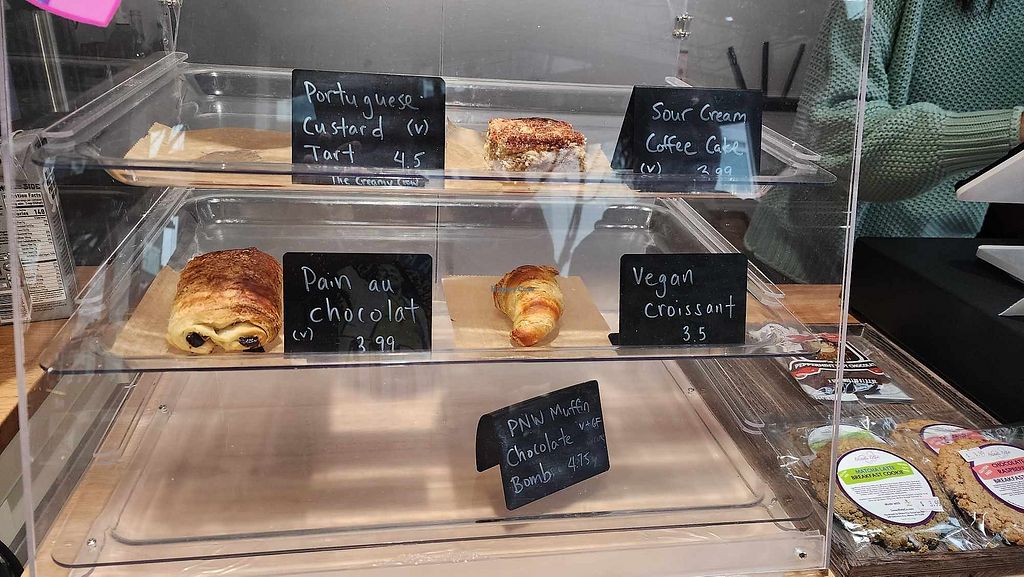 Portuguese
Custard (v)
Tart 4.5
The Creamy Cow
Sour Cream
Coffee Cake
(v) 3.99
Pain au
chocolat
(v) 3.99
Vegan
croissant
3.5
PNW Muffin
Chocolate V+GF
Bomb 4.75
MATCHA LATTE
BREAKFAST COOKIE
CHOCOLATE
RASPBERRY
BREAKFAST